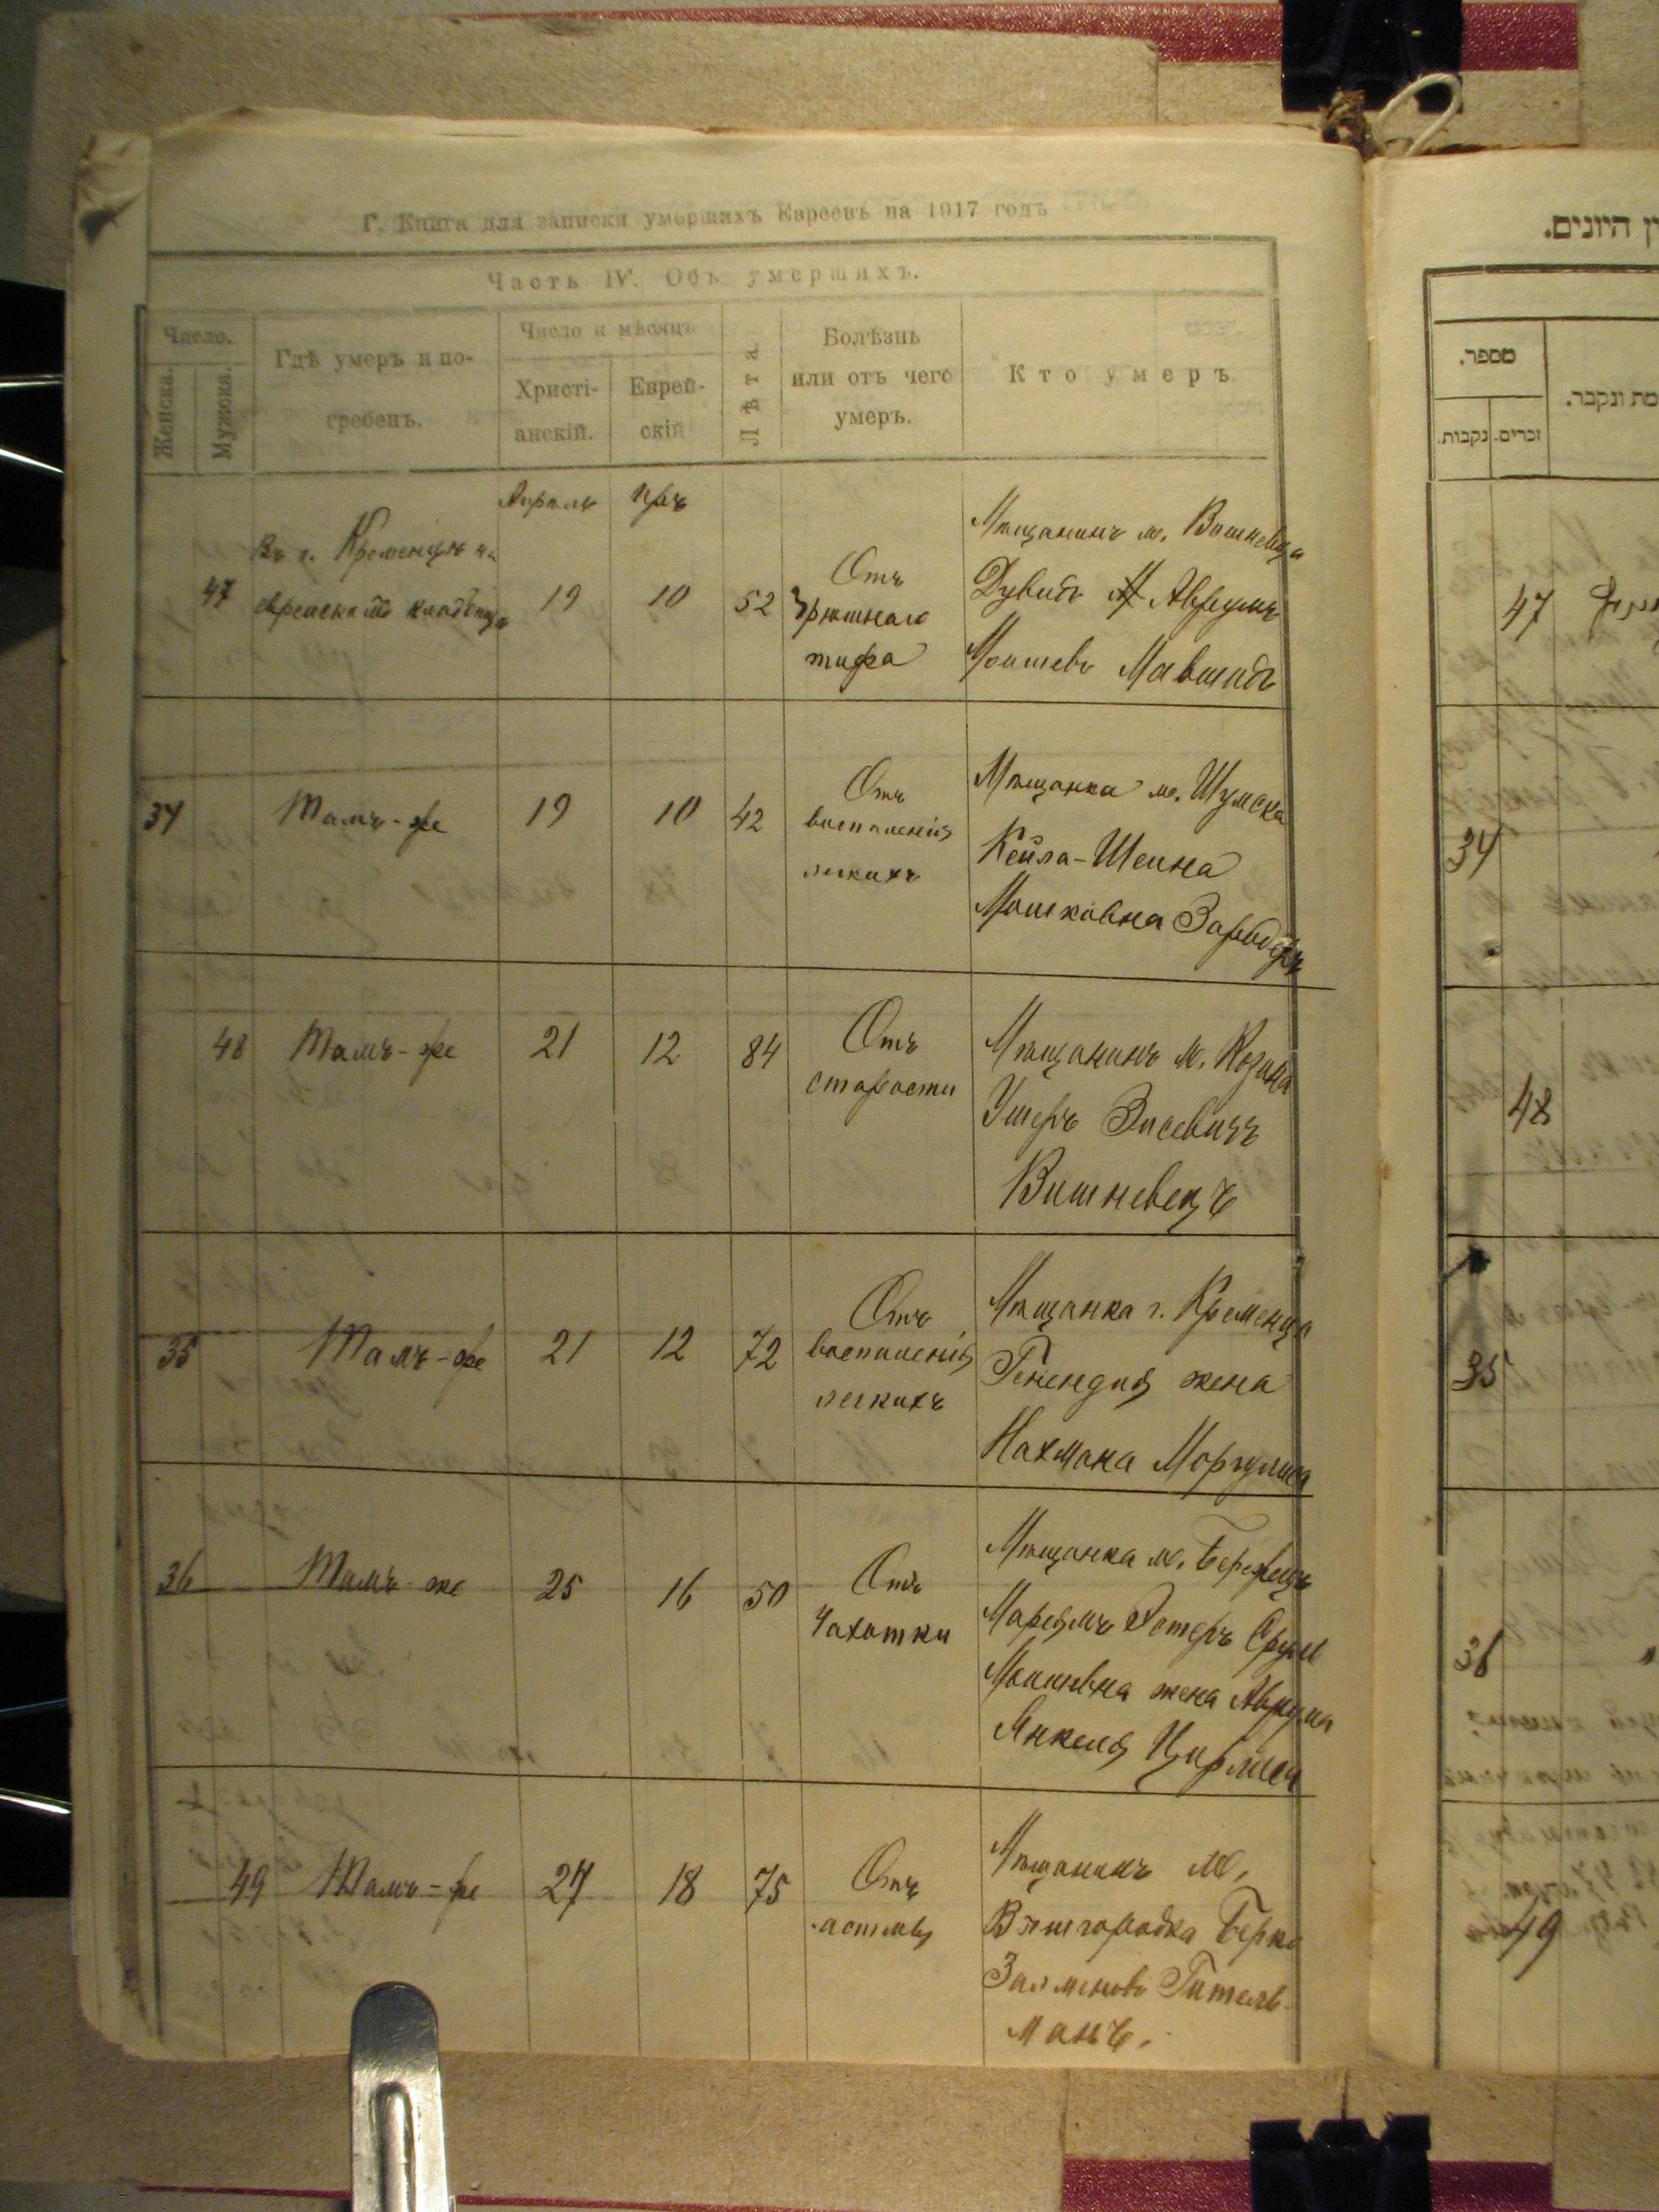 Г. Книга для записки умершихъ Евреевъ на 1917 годъ
Часть IV. Объ умершихъ.
Число.
Женска.
Мужска.
Гдѣ умеръ и по-
гребенъ.
Число и мѣсяцъ
Христі-
анскій.
Еврей-
скій
Лѣта.
Болѣзнь
или отъ чего
умеръ.
Кто умеръ
Апрель
47
Въ г. Кременцѣ на
еврейскомъ кладбищѣ
19
10
52
Отъ
брюшного
тифа
Мѣщанинъ м. Вишневца
Дувидъ Аврумъ
Мошевъ
34
Тамъ-же
19
10
42
Отъ
воспаленія
легкихъ
Мѣщанка м. Шумска
Кейла-Шейна
Мошковна
48
Тамъ-же
21
12
84
Отъ
старости
Мѣщанинъ м. Козина
Ушеръ Зисевичъ
Вишневецъ
35
Тамъ-же
21
12
72
Отъ
воспаленія
легкихъ
Мѣщанка г. Кременца
Генендля жена
Нахмана Моргулиса
36
Тамъ-же
25
16
50
Отъ
чахотки
Мѣщанка м. Бережецъ
Марьямъ Эстеръ Сруль
жена Аврума
Янкеля
49
Тамъ-же
27
18
75
Отъ
астмы
Мѣщанинъ м.
Вышгородка Берко
Залменовъ Гитель-
манъ.
ן היונים.
מספר.
זכרים.
נקבות.
מת ונקבר.
47
34
48
35
36
49